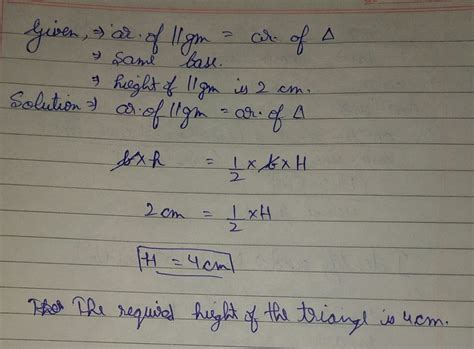 Given, ⇒ ar. of ||gm = ar. of Δ
⇒ Same base.
⇒ height of ||gm is 2 cm.
Solution ⇒ ar. of ||gm = ar. of Δ
b × h = 1/2 × b × H
2 cm = 1/2 × H
H = 4 cm
The required height of the triangl is 4 cm.